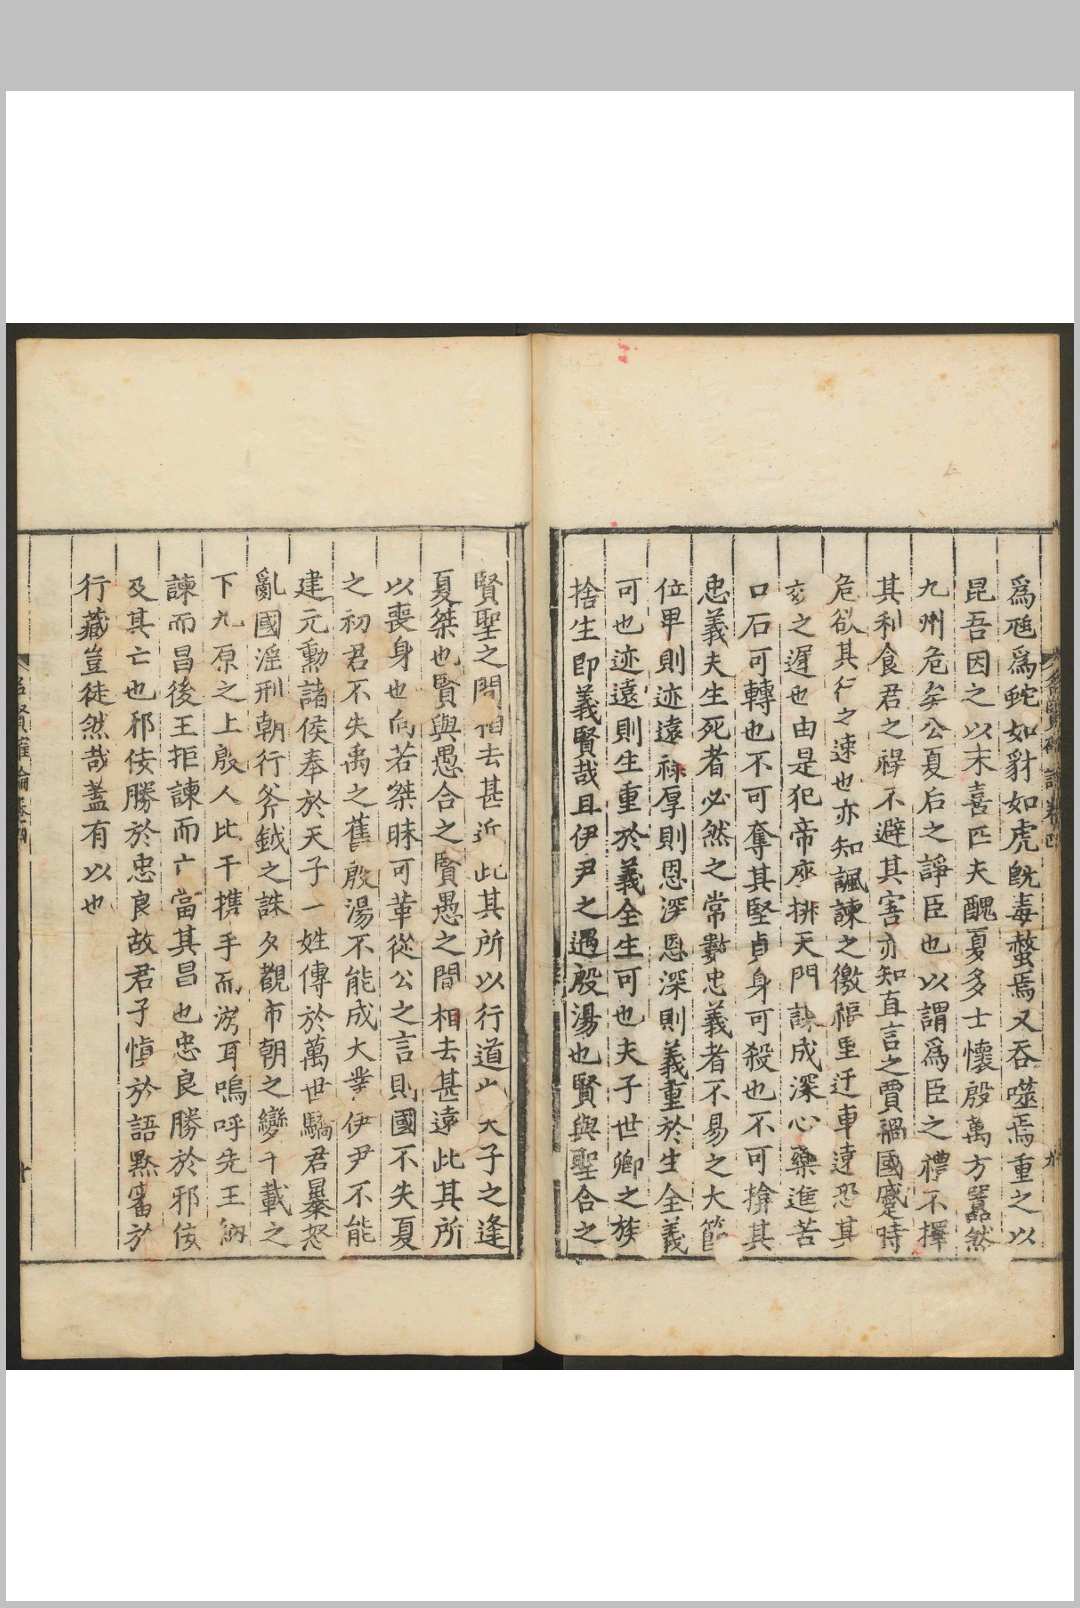 爲虺爲蛇如豺如虎旣毒螫焉又吞噬焉重之以
昆吾因之以末喜匹夫醜夏多士懷殷萬方嚣然
九州危矣公夏后之諍臣也以謂爲臣之禮不擇
其利食君之祿不避其害亦知直言之賈禍國蹙時
危欲其行之速也亦知諷諫之徼福重迂車遠恐其
之遲也由是犯帝座排天門誠成深心藥進苦
口石可轉也不可奪其堅貞身可殺也不可揜其
忠義夫生死者必然之常數忠義者不易之大節
位卑則迹遠祿厚則恩深恩深則義重於生全義
可也迹遠則生重於義全生可也夫子世卿之族
捨生即義賢哉且伊尹之遇殷湯也賢與聖合之
賢聖之間相去甚近此其所以行道也夫子之逢
夏桀也賢與愚合之賢愚之間相去甚遠此其所
以喪身也向若桀昧可革從公之言則國不失夏
之初君不失禹之舊殷湯不能成大業伊尹不能
建元勳諸侯奉於天子一姓傳於萬世驕君暴怒
亂國滛刑朝行斧鉞之誅夕觀市朝之變千載之
下九原之上殷人比干攜手而游耳嗚呼先王納
諫而昌後王拒諫而亡當其昌也忠良勝於邪佞
及其亡也邪佞勝於忠良故君子愼於語黙審於
行藏豈徒然哉蓋有以也